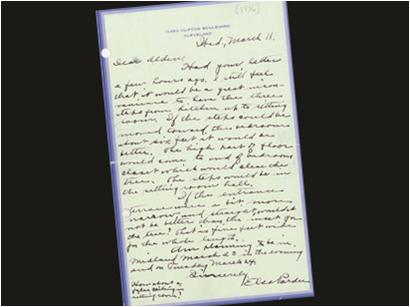 [1936]
11520 CLIFTON BOULEVARD
CLEVELAND
Wed, March 11.
Dear Alden:
Had your letter
a few hours ago. I still feel
that it would be a great incon-
venience to have the three
steps from kitchen up to sitting
room. If the steps could be
moved toward the bedrooms
about six feet it would be
better. The high part of floor
would come to end of bedroom
closet which would clear the
tree. The steps would be in
the sitting room hall.
If the entrance
terrace were a bit more
narrow and straight, would it
not be better than the inset for
the tree? That is fine feet wide
for the whole length.
Am planning to be in
Midland March 23 in the evening
and on Tuesday March 24.
Sincerely
How about a
ceiling in
sitting room?